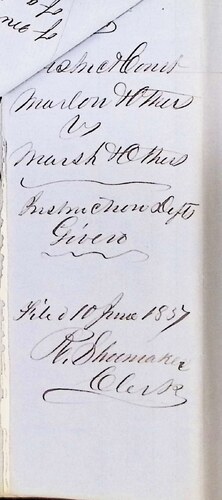 District Court
Marlon & Others
V
Marsh & Others
Instructions Defts
Given
Filed 10 June 1857
R. Shoemaker
Clerk